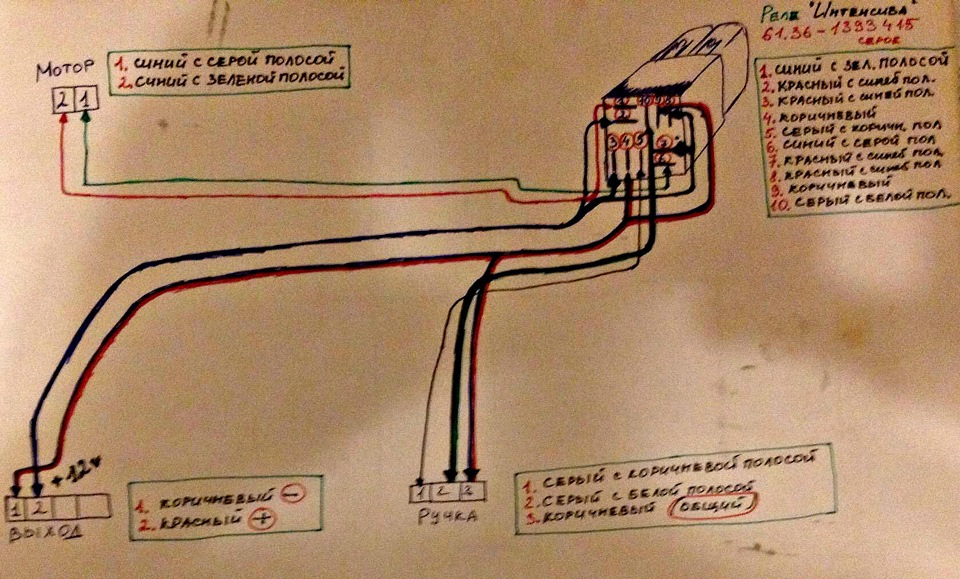 Реле "Интенсива"
61.36-1393 415
серое
Мотор
2 1
1. синий с серой полосой
2. синий с зеленой полосой
1. синий с зел. полосой
2. красный с синей пол.
3. красный с синей пол.
4. коричневый
5. серый с коричн. пол
6. синий с серой пол
7. красный с синей пол.
8. красный с синей пол
9. коричневый
10. серый с белой пол.
3 4 5
+12v
1 2
выход
1. коричневый −
2. красный +
1 2 3
Ручка
1. серый с коричневой полосой
2. серый с белой полосой
3. коричневый (общий)